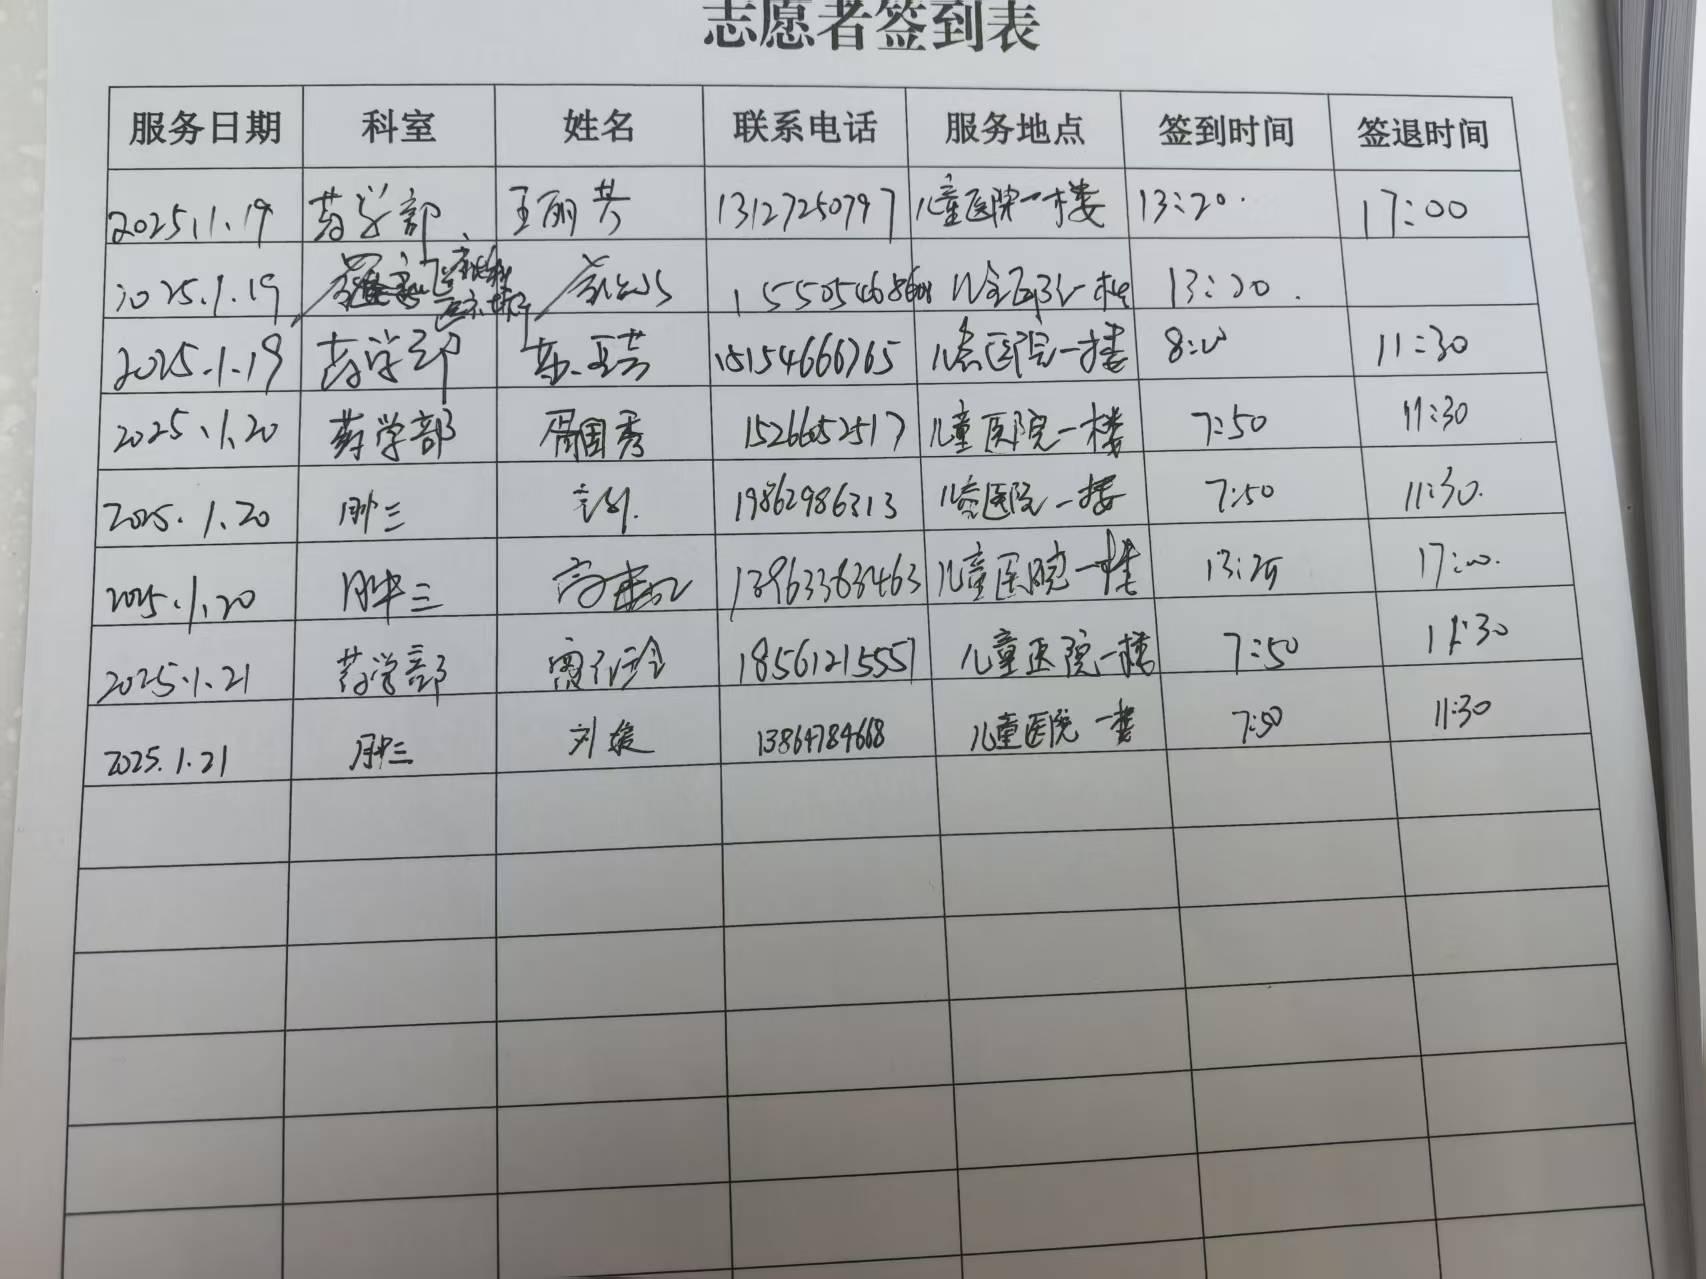 志愿者签到表
服务日期 科室 姓名 联系电话 服务地点 签到时间 签退时间
2025.1.19 药学部 王丽芳 13127250797 儿童医院一楼 13:20 17:00
2025.1.19 儿童医院一楼 13:20
2025.1.19 药学部 15154666765 儿童医院一楼 8:00 11:30
2025.1.20 药学部 胥国秀 15266052517 儿童医院一楼 7:50 11:30
2025.1.20 肿三 19862986313 儿童医院一楼 7:50 11:30
2025.1.20 肿三 13963363463 儿童医院一楼 17:00
2025.1.21 药学部 18561215551 儿童医院一楼 7:50 11:30
2025.1.21 肿三 刘媛 13864784668 儿童医院一楼 7:50 11:30